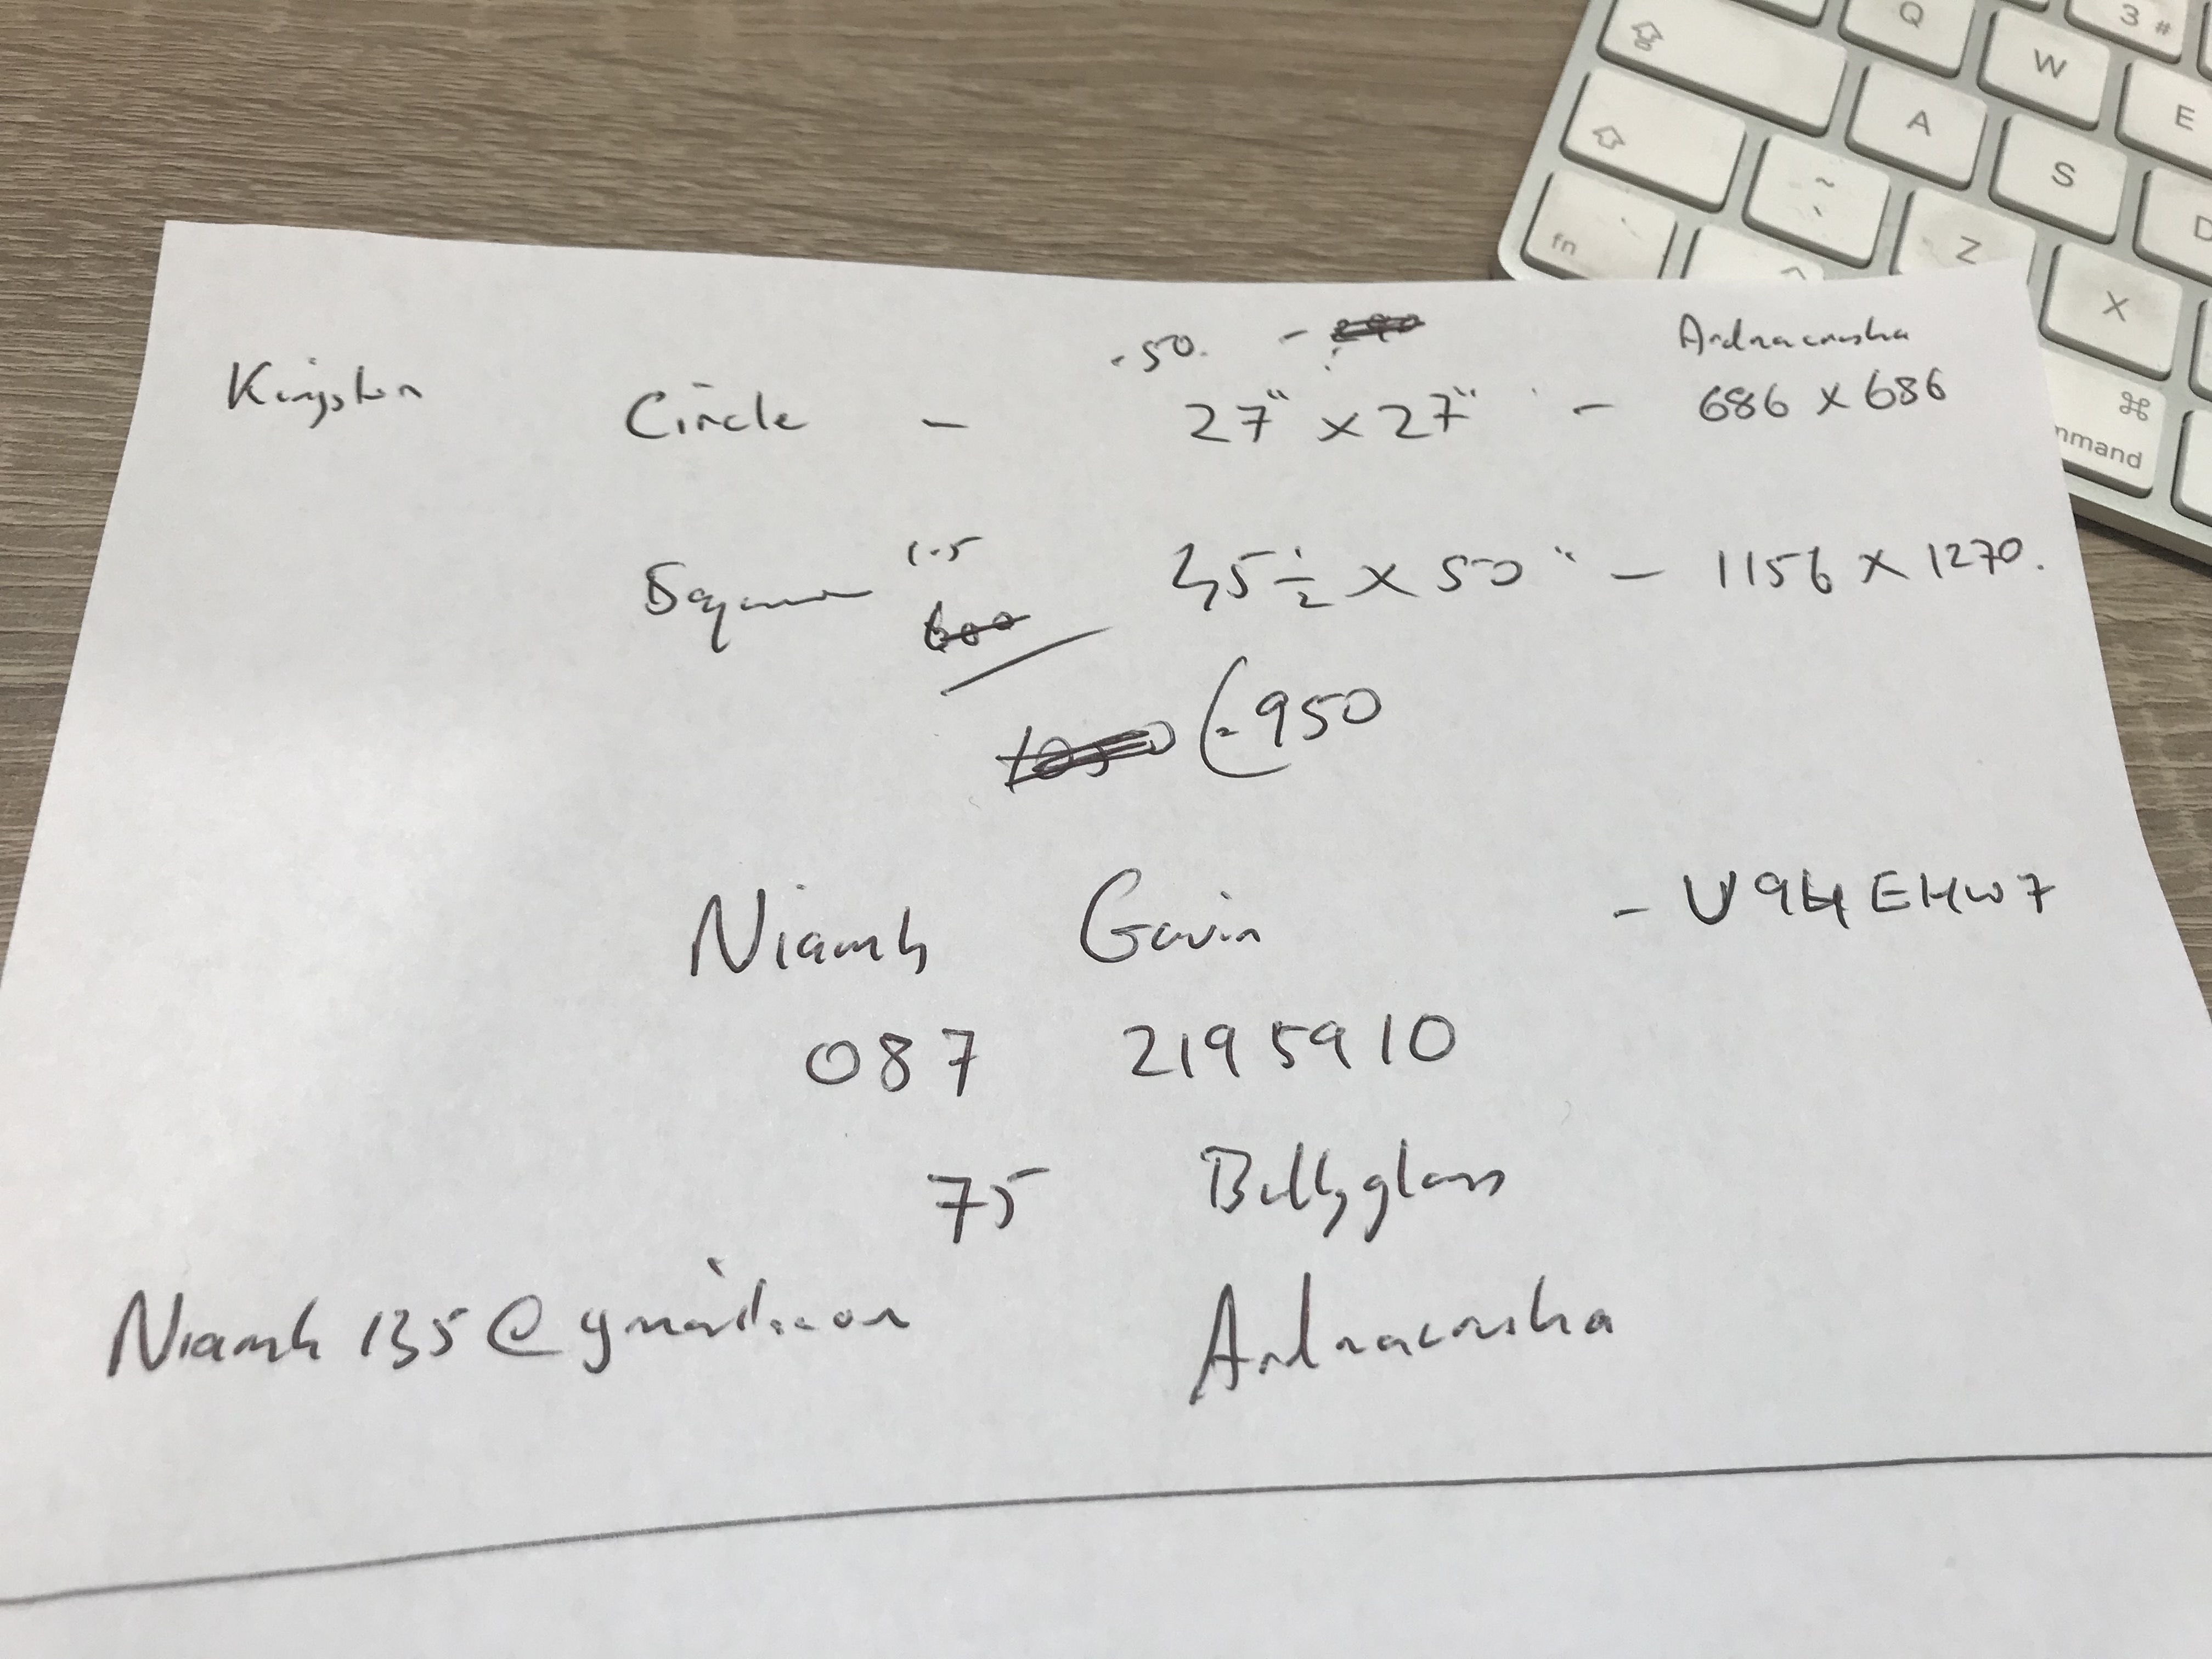 Q W E 3 #
A S D
fn ~ Z X
⌘
mmand
.50. - Ardnacrusha
Kingston Circle - 27" x 27" - 686 x 686
Square 1.5 45 1/2 x 50" - 1156 x 1270.
600
1050 (- 950
Niamh Gavin - V94EHW7
087 2195910
75 Ballyglass
Niamh135@gmail.com Ardnacrusha